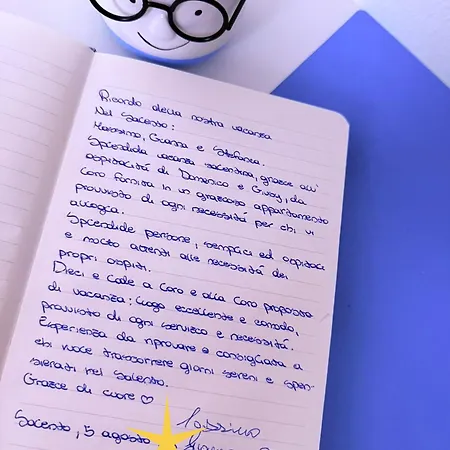 Ricordo della nostra vacanza
Nel Salento:
Massimo, Gianna e Stefania.
Splendida vacanza salentina, grazie all'
ospitalità di Domenico e Giusy, da
loro fornita in un grazioso appartamento
provvisto di ogni necessità per chi vi
alloggia.
Splendide persone, semplici ed ospitali
e molto attenti alle necessità dei
propri ospiti.
Dieci e lode a loro e alla loro proposta
di vacanza: luogo eccellente e comodo,
provvisto di ogni servizio e necessità.
Esperienza da riprovare e consigliata a
chi vuole trascorrere giorni sereni e spen-
sierati nel Salento.
Grazie di cuore ♡
Massimo
Salento, 5 agosto